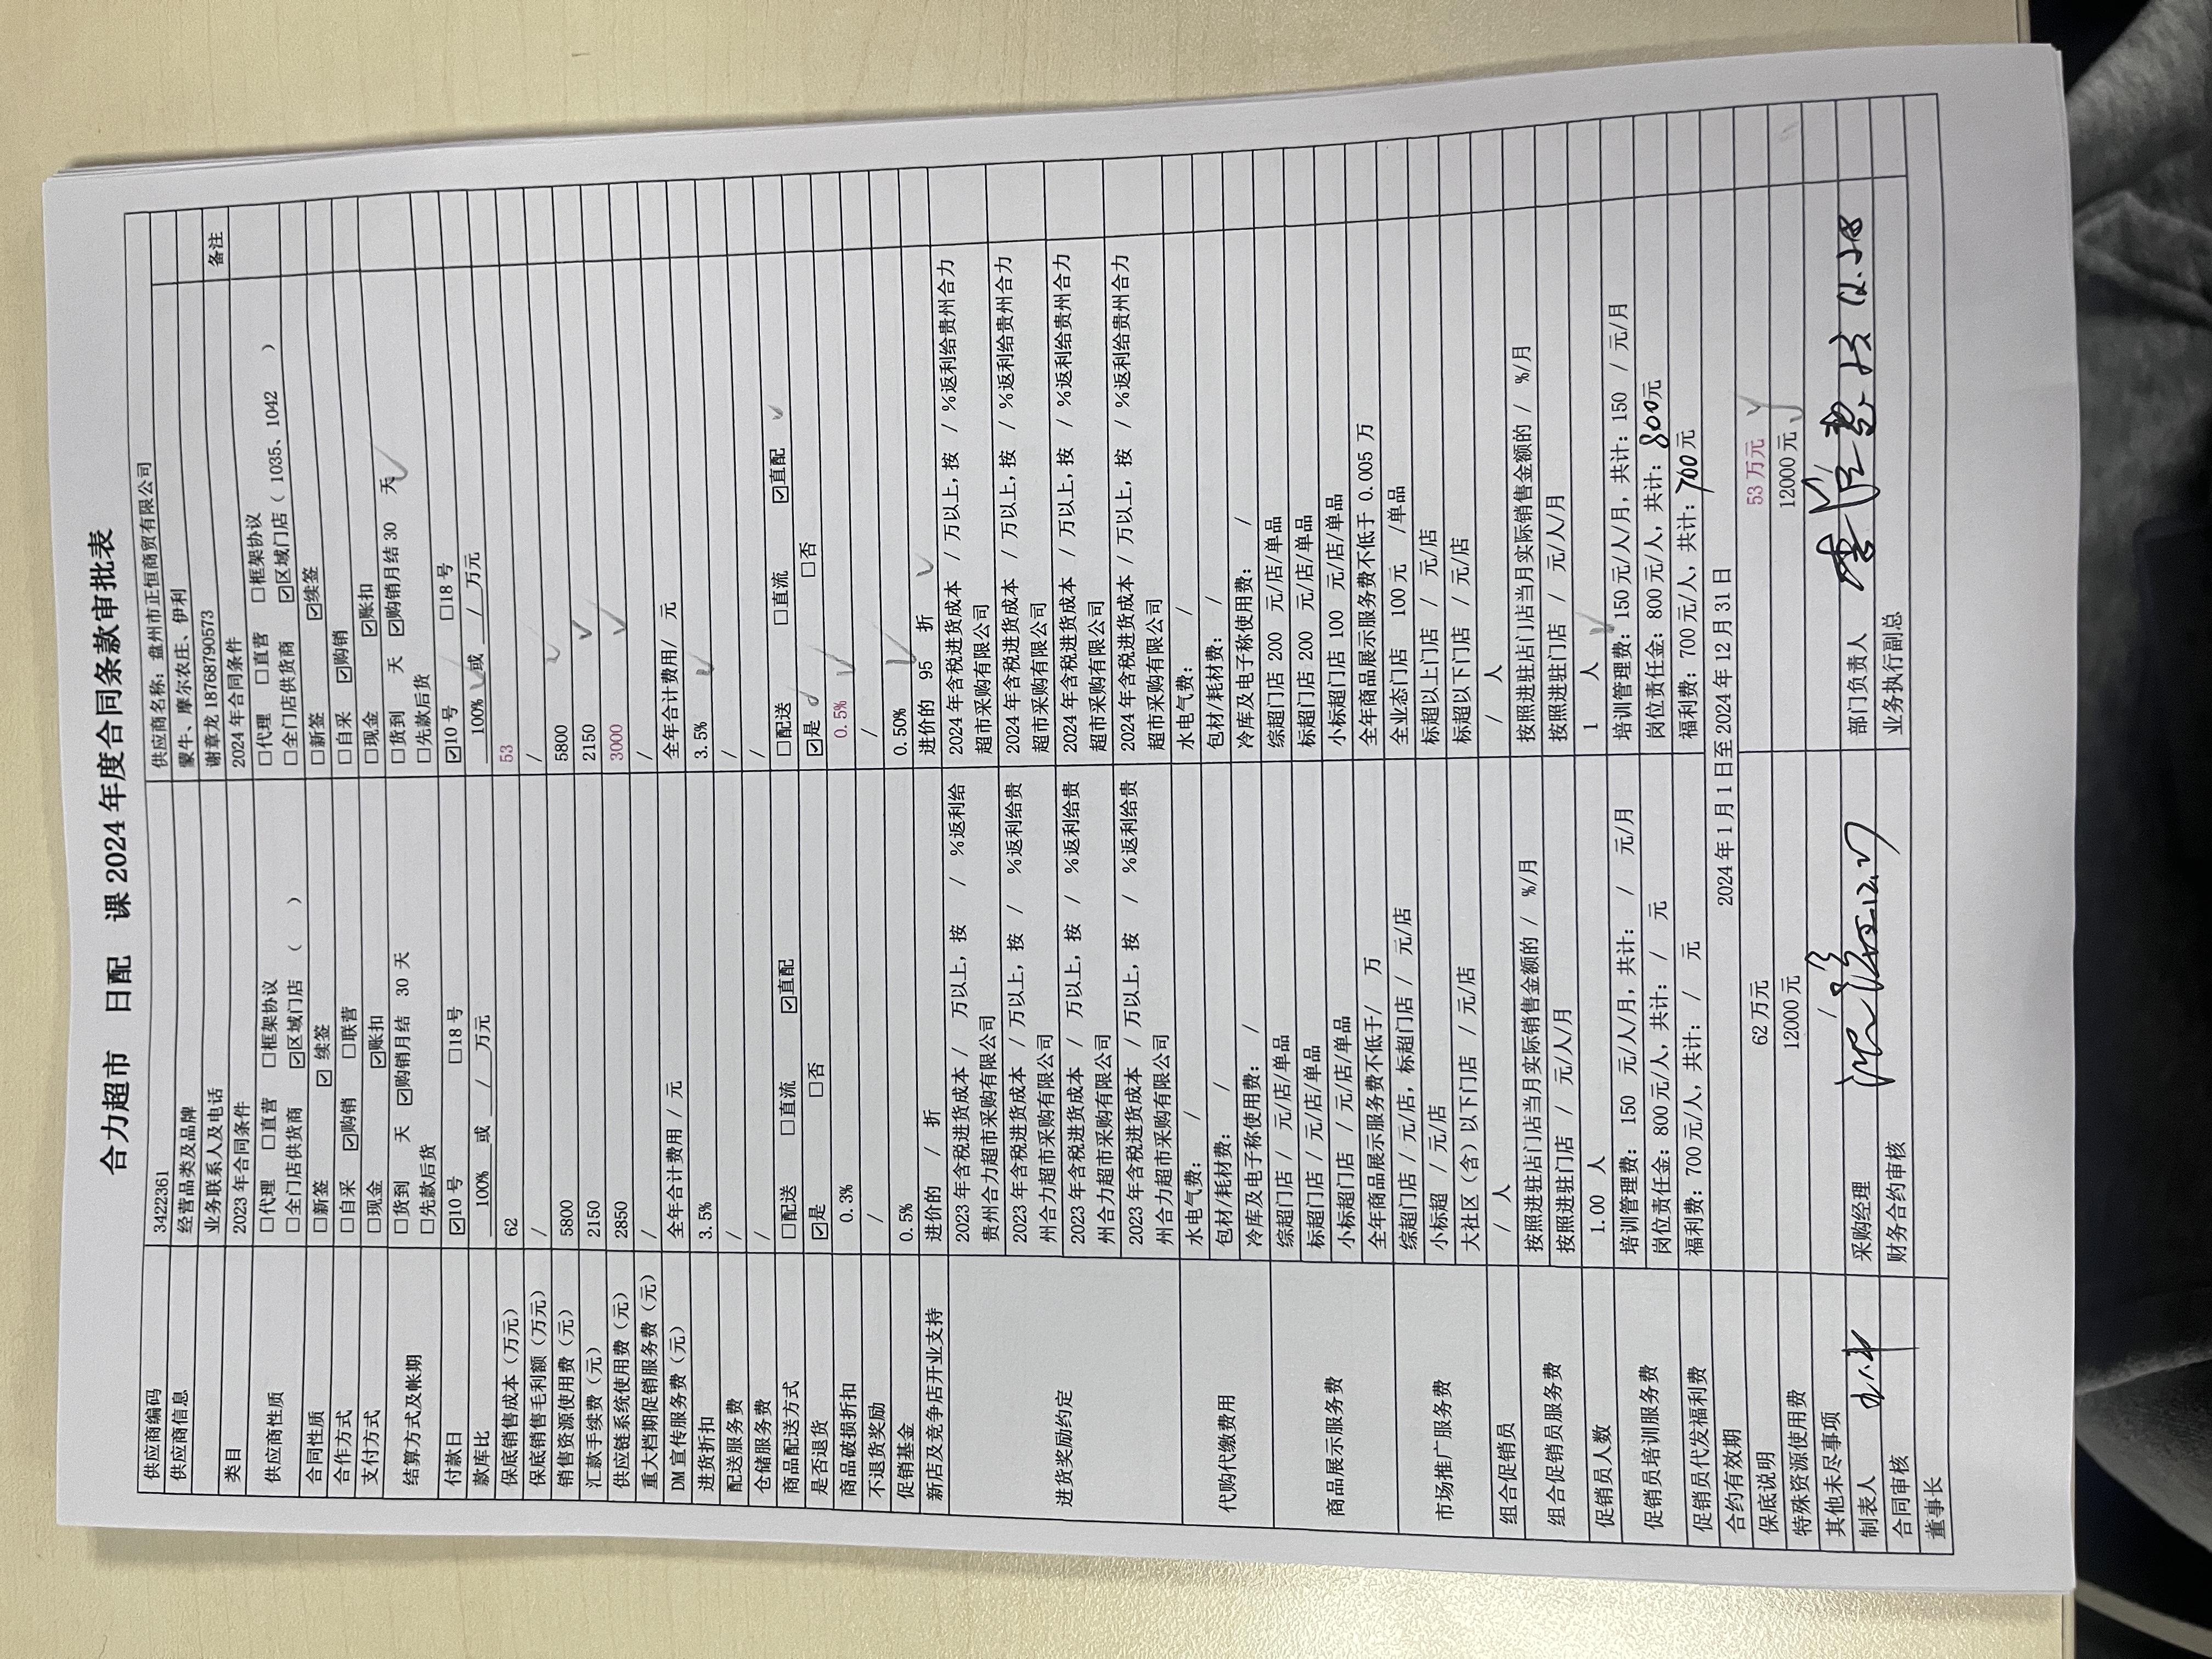 合力超市 日配 课2024年度合同条款审批表
供应商编码 3422361 供应商名称：盘州市正恒商贸有限公司
供应商信息 经营品类及品牌 蒙牛、摩尔农庄、伊利
业务联系人及电话 谢章龙 18768790573
类目 2023年合同条件 2024年合同条件 备注
供应商性质 □代理 □直营 □框架协议 □代理 □直营 □框架协议
□全门店供货商 ☑区域门店（ ） □全门店供货商 ☑区域门店（ 1035、1042 ）
合同性质 □新签 ☑续签 □新签 ☑续签
合作方式 □自采 ☑购销 □联营 □自采 ☑购销
支付方式 □现金 ☑账扣 □现金 ☑账扣
结算方式及帐期 □货到 天 ☑购销月结 30 天 □货到 天 ☑购销月结 30 天
□先款后货 □先款后货
付款日 ☑10号 □18号 ☑10号 □18号
款库比 100% 或 / 万元 100% 或 / 万元
保底销售成本（万元） 62 53
保底销售毛利额（万元） / /
销售资源使用费（元） 5800 5800
汇款手续费（元） 2150 2150
供应链系统使用费（元） 2850 3000
重大档期促销服务费（元） / /
DM宣传服务费（元） 全年合计费用 / 元 全年合计费用/ 元
进货折扣 3.5% 3.5%
配送服务费 / /
仓储服务费 / /
商品配送方式 □配送 □直流 ☑直配 □配送 □直流 ☑直配
是否退货 ☑是 □否 ☑是 □否
商品破损折扣 0.3% 0.5%
不退货奖励 / /
促销基金 0.5% 0.50%
新店及竞争店开业支持 进价的 / 折 进价的 95 折
进货奖励约定 2023年含税进货成本 / 万以上，按 / %返利给 2024年含税进货成本 / 万以上，按 / %返利给贵州合力
贵州合力超市采购有限公司 超市采购有限公司
2023年含税进货成本 / 万以上，按 / %返利给贵 2024年含税进货成本 / 万以上，按 / %返利给贵州合力
州合力超市采购有限公司 超市采购有限公司
2023年含税进货成本 / 万以上，按 / %返利给贵 2024年含税进货成本 / 万以上，按 / %返利给贵州合力
州合力超市采购有限公司 超市采购有限公司
2023年含税进货成本 / 万以上，按 / %返利给贵 2024年含税进货成本 / 万以上，按 / %返利给贵州合力
州合力超市采购有限公司 超市采购有限公司
代购代缴费用 水电气费： / 水电气费： /
包材/耗材费： / 包材/耗材费： /
冷库及电子称使用费： / 冷库及电子称使用费： /
商品展示服务费 综超门店 / 元/店/单品 综超门店 200 元/店/单品
标超门店 / 元/店/单品 标超门店 200 元/店/单品
小标超门店 / 元/店/单品 小标超门店 100 元/店/单品
全年商品展示服务费不低于/ 万 全年商品展示服务费不低于 0.005 万
市场推广服务费 综超门店 / 元/店，标超门店 / 元/店 全业态门店 100元 /单品
小标超 / 元/店 标超以上门店 / 元/店
大社区（含）以下门店 / 元/店 标超以下门店 / 元/店
组合促销员 / 人 / 人
组合促销员服务费 按照进驻店门店当月实际销售金额的 / %/月 按照进驻店门店当月实际销售金额的 / %/月
按照进驻门店 / 元/人/月 按照进驻门店 / 元/人/月
促销员人数 1.00 人 1 人
促销员培训服务费 培训管理费： 150 元/人/月，共计： / 元/月 培训管理费：150元/人/月，共计：150 / 元/月
岗位责任金：800元/人，共计： / 元 岗位责任金：800元/人，共计：800元
促销员代发福利费 福利费：700元/人，共计： / 元 福利费：700元/人，共计：700元
合约有效期 2024年1月1日至2024年12月31日
保底说明 62万元 53万元
特殊资源使用费 12000元 12000元
其他未尽事项
制表人 采购经理 部门负责人
合同审核 财务合约审核 业务执行副总
董事长